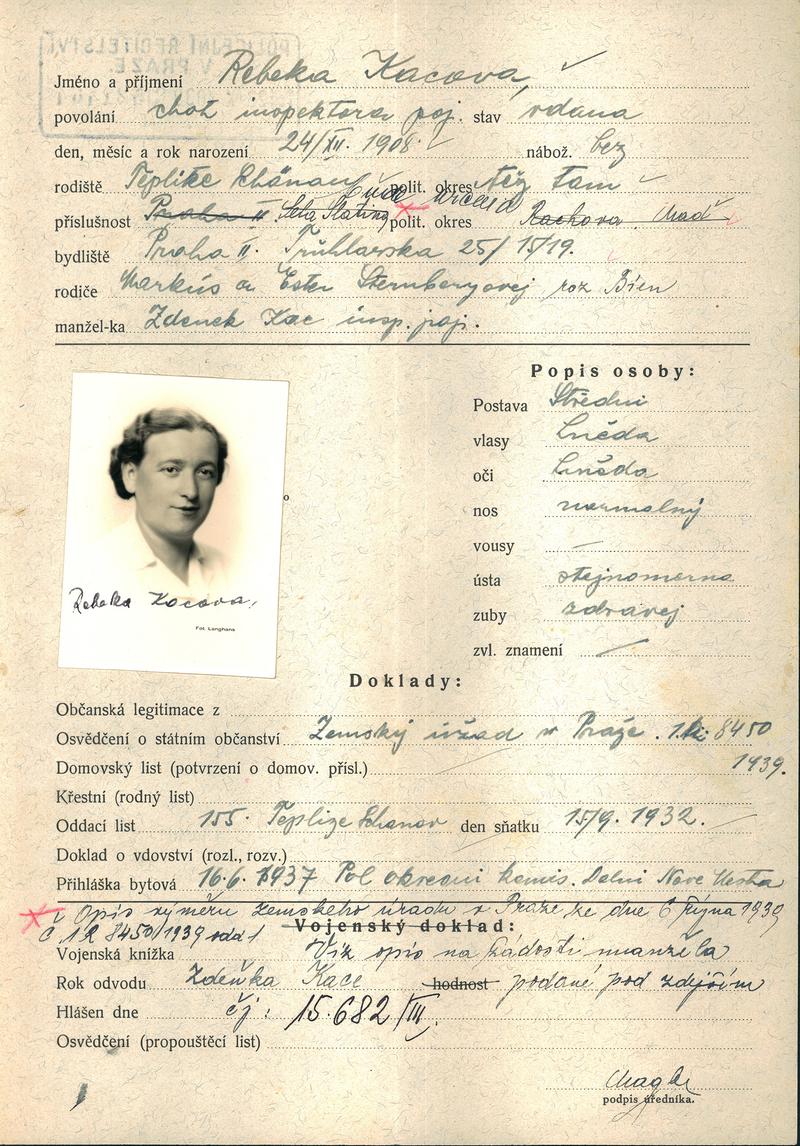 POLICEJNÍ ŘEDITELSTVÍ
V PRAZE
Jméno a příjmení Rebeka Kacova
povolání choť inspektora poj. stav vdana
den, měsíc a rok narození 24/XII. 1908. nábož. bez
rodiště Teplitz Schánau polit. okres též tam
příslušnost Praha II Slatina polit. okres Rachova,
bydliště Praha II. Truhlarska 25/1519.
rodiče Markus a Ester Sternbergovej roz Bien
manžel-ka Zdenek Kac insp. poj.
Popis osoby:
Postava Středni
vlasy hněda
oči hněda
nos normalný
vousy —
ústa stejnomerna
zuby zdravej
zvl. znamení
Rebeka Kacova.
Fot. Langhans
Doklady:
Občanská legitimace z
Osvědčení o státním občanství Zemský úřad v Praze. 8450
1939.
Domovský list (potvrzení o domov. přísl.)
Křestní (rodný list)
Oddací list 155. Teplize Schanov den sňatku 15/9. 1932.
Doklad o vdovství (rozl., rozv.)
Přihláška bytová 16.6. 1937 Pol okresni komis. Dolni Nove Mesta
Opis výměru zemskeho úradu v Praze ze dne 6 října 1939
8450/1939 odd 1
Vojenský doklad:
Vojenská knížka Viz opis na žádosti manžela
Rok odvodu Zdeňka Kace hodnost podané pod zdejším
Hlášen dne čj: 15.682/III.
Osvědčení (propouštěcí list)
podpis úředníka.